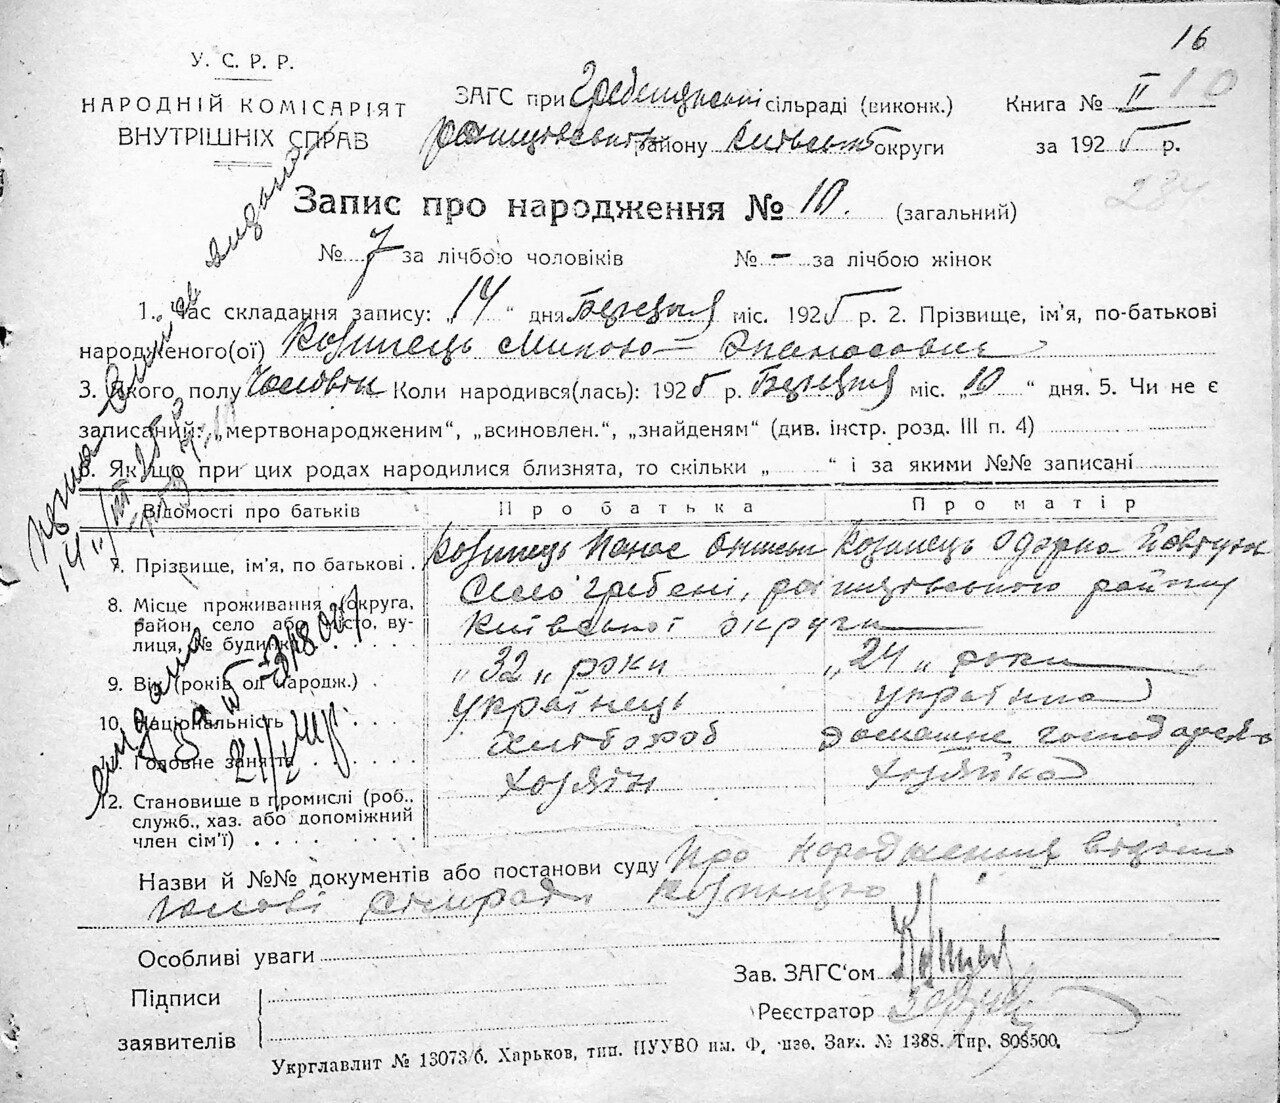 16
У. С. Р. Р.
НАРОДНІЙ КОМІСАРІЯТ
ВНУТРІШНІХ СПРАВ
ЗАГС при Гребенянській сільраді (виконк.)
району Київської округи
Книга № II 10
за 1925 р.
284
Запис про народження № 10. (загальний)
№ 7 за лічбою чоловіків № – за лічбою жінок
1. Час складання запису: „14“ дня Березня міс. 1925 р. 2. Прізвище, ім'я, по-батькові
народженого(ої) Козинець Микола Опанасович
3. Якого полу Чоловік Коли народився(лась): 1925 р. Березня міс. „10“ дня. 5. Чи не є
записаний: „мертвонародженим“, „всиновлен.“, „знайденям“ (див. інстр. розд. III п. 4)
6. Якщо при цих родах народилися близнята, то скільки „ “ і за якими №№ записані
Відомості про батьків
Про батька
Про матір
7. Прізвище, ім'я, по батькові .
Козинець Панас
Козинець Одарка
8. Місце проживання (округа,
район, село або місто, ву-
лиця, № будинку)
Село Гребені, району
Київської округи
9. Вік (років од народж.)
„32„ роки
„24„ роки
10. Національність
українець
українка
11. Головне заняття
Хлібороб
домашнє господарств
12. Становище в промислі (роб.,
служб., хаз. або допоміжний
член сім'ї)
хозяїн
хозяйка
Назви й №№ документів або постанови суду Про народження
голові сільради Козинцю
Особливі уваги
Підписи
заявителів
Зав. ЗАГС‘ом
Реєстратор
Укрглавлит № 13073/б. Харьков, тип. ПУУВО им. Ф. Зак. № 1388. Тир. 808500.
видана